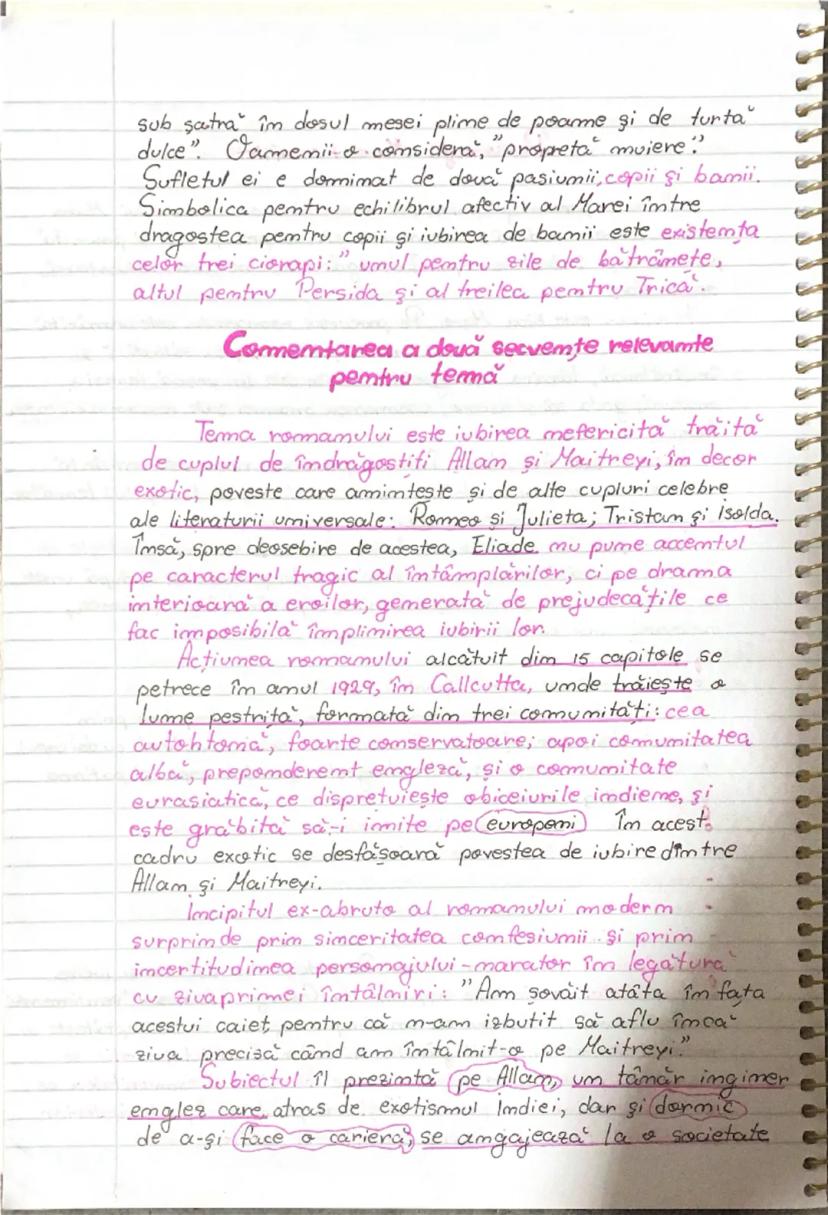 sub șatră în dosul mesei pline de poame și de turtă
dulce". Oamenii o consideră, "propretă muiere".
Sufletul ei e dominat de două pasiuni, copii și banii.
Simbolica pentru echilibrul afectiv al Marei între
dragostea pentru copii și iubirea de banii este existența
celor trei ciorapi: "unul pentru zile de bătrânețe,
altul pentru Persida și al treilea pentru Trică.
Comentarea a două secvențe relevante
pentru temă
Tema romanului este iubirea nefericită trăită
de cuplul de îndrăgostiți Allan și Maitreyi, în decor
exotic, poveste care amintește și de alte cupluri celebre
ale literaturii universale: Romeo și Julieta; Tristan și Isolda.
Însă, spre deosebire de acestea, Eliade nu pune accentul
pe caracterul tragic al întâmplărilor, ci pe drama
interioară a eroilor, generată de prejudecățile ce
fac imposibilă împlinirea iubirii lor.
Acțiunea romanului alcătuit din 15 capitole se
petrece în anul 1929, în Callcutta, unde trăiește o
lume pestriță, formată din trei comunități: cea
autohtonă, foarte conservatoare; apoi comunitatea
albă, preponderent engleză, și o comunitate
eurasiatică, ce disprețuiește obiceiurile indiene, și
este grăbită să-i imite pe europeni În acest
cadru exotic se desfășoară povestea de iubire dintre
Allan și Maitreyi.
Incipitul ex-abruto al romanului modern
surprinde prin sinceritatea confesiunii și prin
incertitudinea personajului-narator în legătură
cu ziua primei întâlniri: "Am șovăit atâta în fața
acestui caiet pentru că n-am izbutit să aflu încă
ziua precisă când am întâlnit-o pe Maitreyi."
Subiectul îl prezintă pe Allan, un tânăr inginer
englez care, atras de exotismul Indiei, dar și dornic
de a-și face o carieră, se angajează la o societate